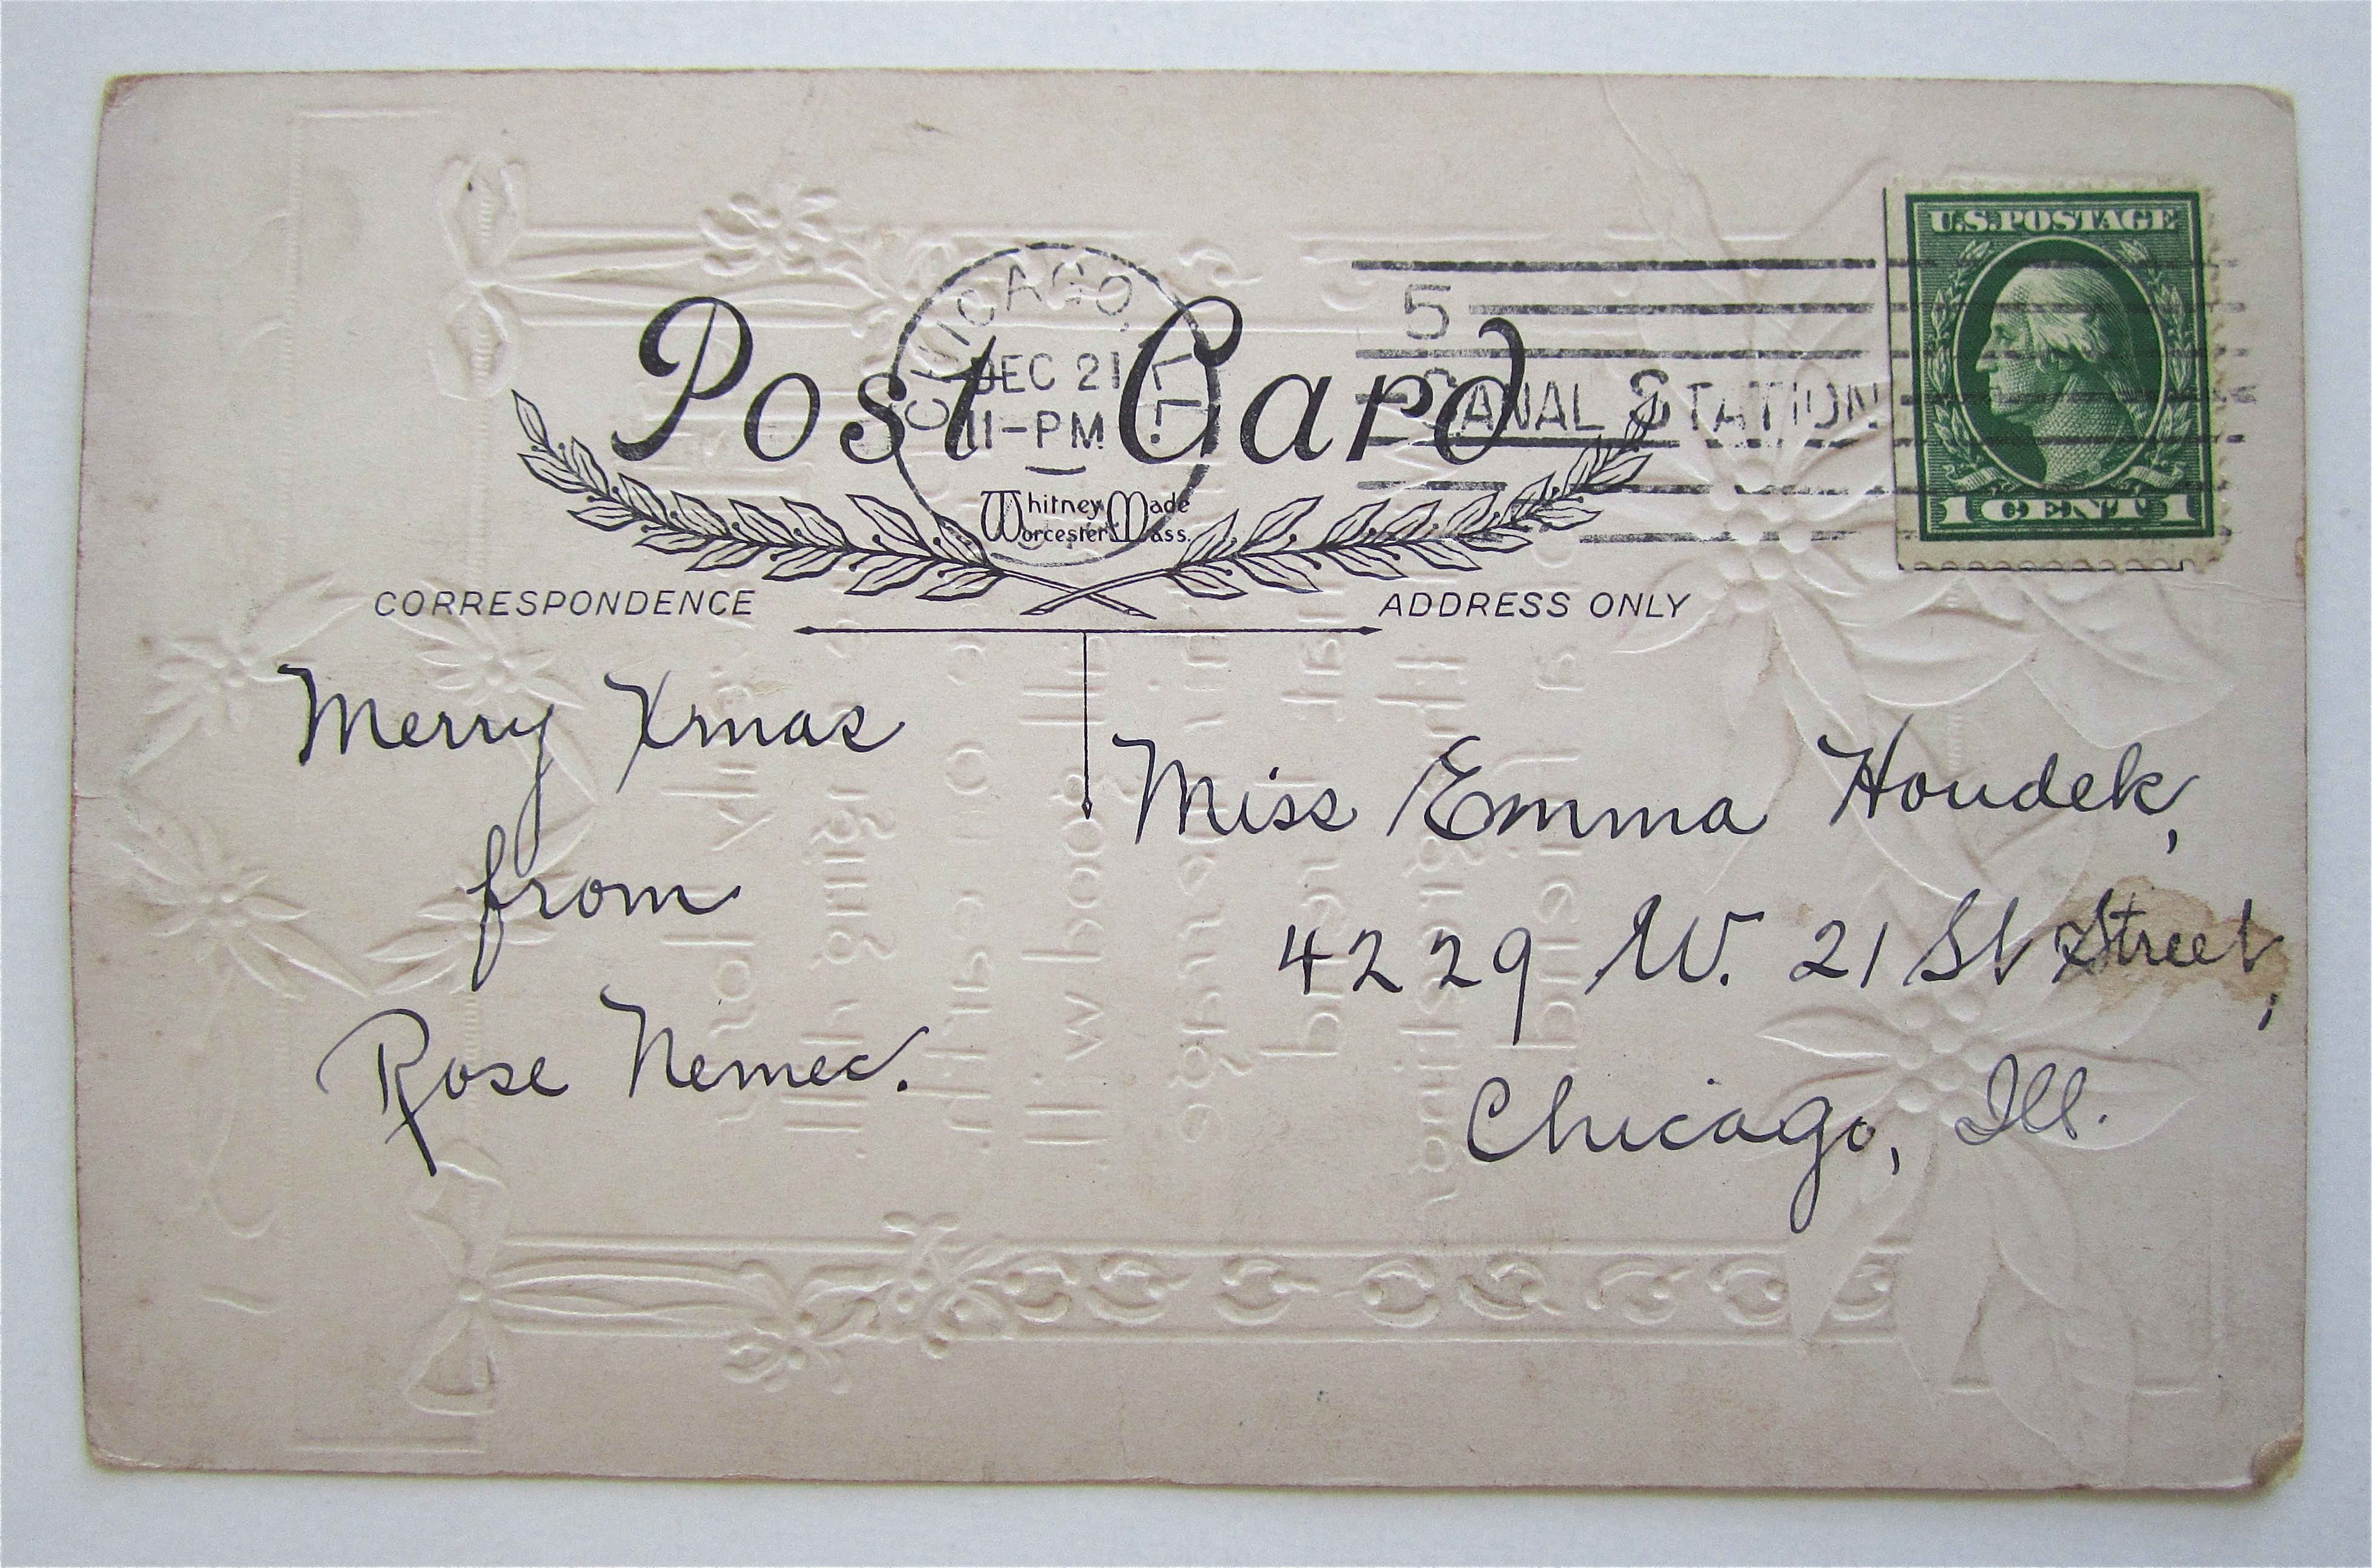 U.S. POSTAGE
1 CENT 1
CHICAGO, ILL.
DEC 21
11-PM
5
CANAL STATION
Post Card
Whitney Made
Worcester Mass.
CORRESPONDENCE
ADDRESS ONLY
Merry Xmas
from
Rose Nemec.
Miss Emma Houdek,
4229 W. 21 St Street,
Chicago, Ill.